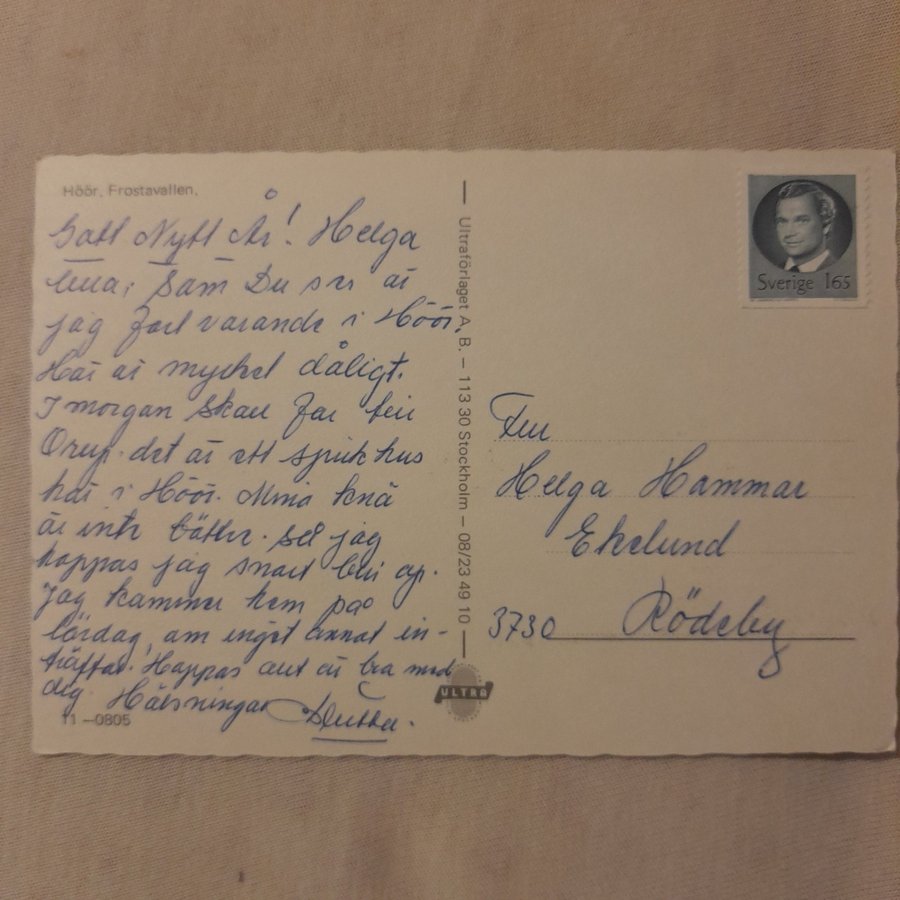 Höör, Frostavallen.
Gott Nytt År! Helga
lilla, Som Du ser är
jag fort varande i Höör.
Här är mycket dåligt.
I morgon skall far till
Orup. det är ett sjuk hus
här i Höör. Mina knä
är inte bättre. så jag
hoppas jag snart blir op.
Jag kommer hem på
lördag, om inget annat in-
träffar. Hoppas allt är bra med
dig Hälsningar
11-0805
Ultraförlaget A.B. - 113 30 Stockholm - 08/23 49 10
ULTRA
Sverige 165
Fru
Helga Hammar
Ekelund
3730 Rödeby